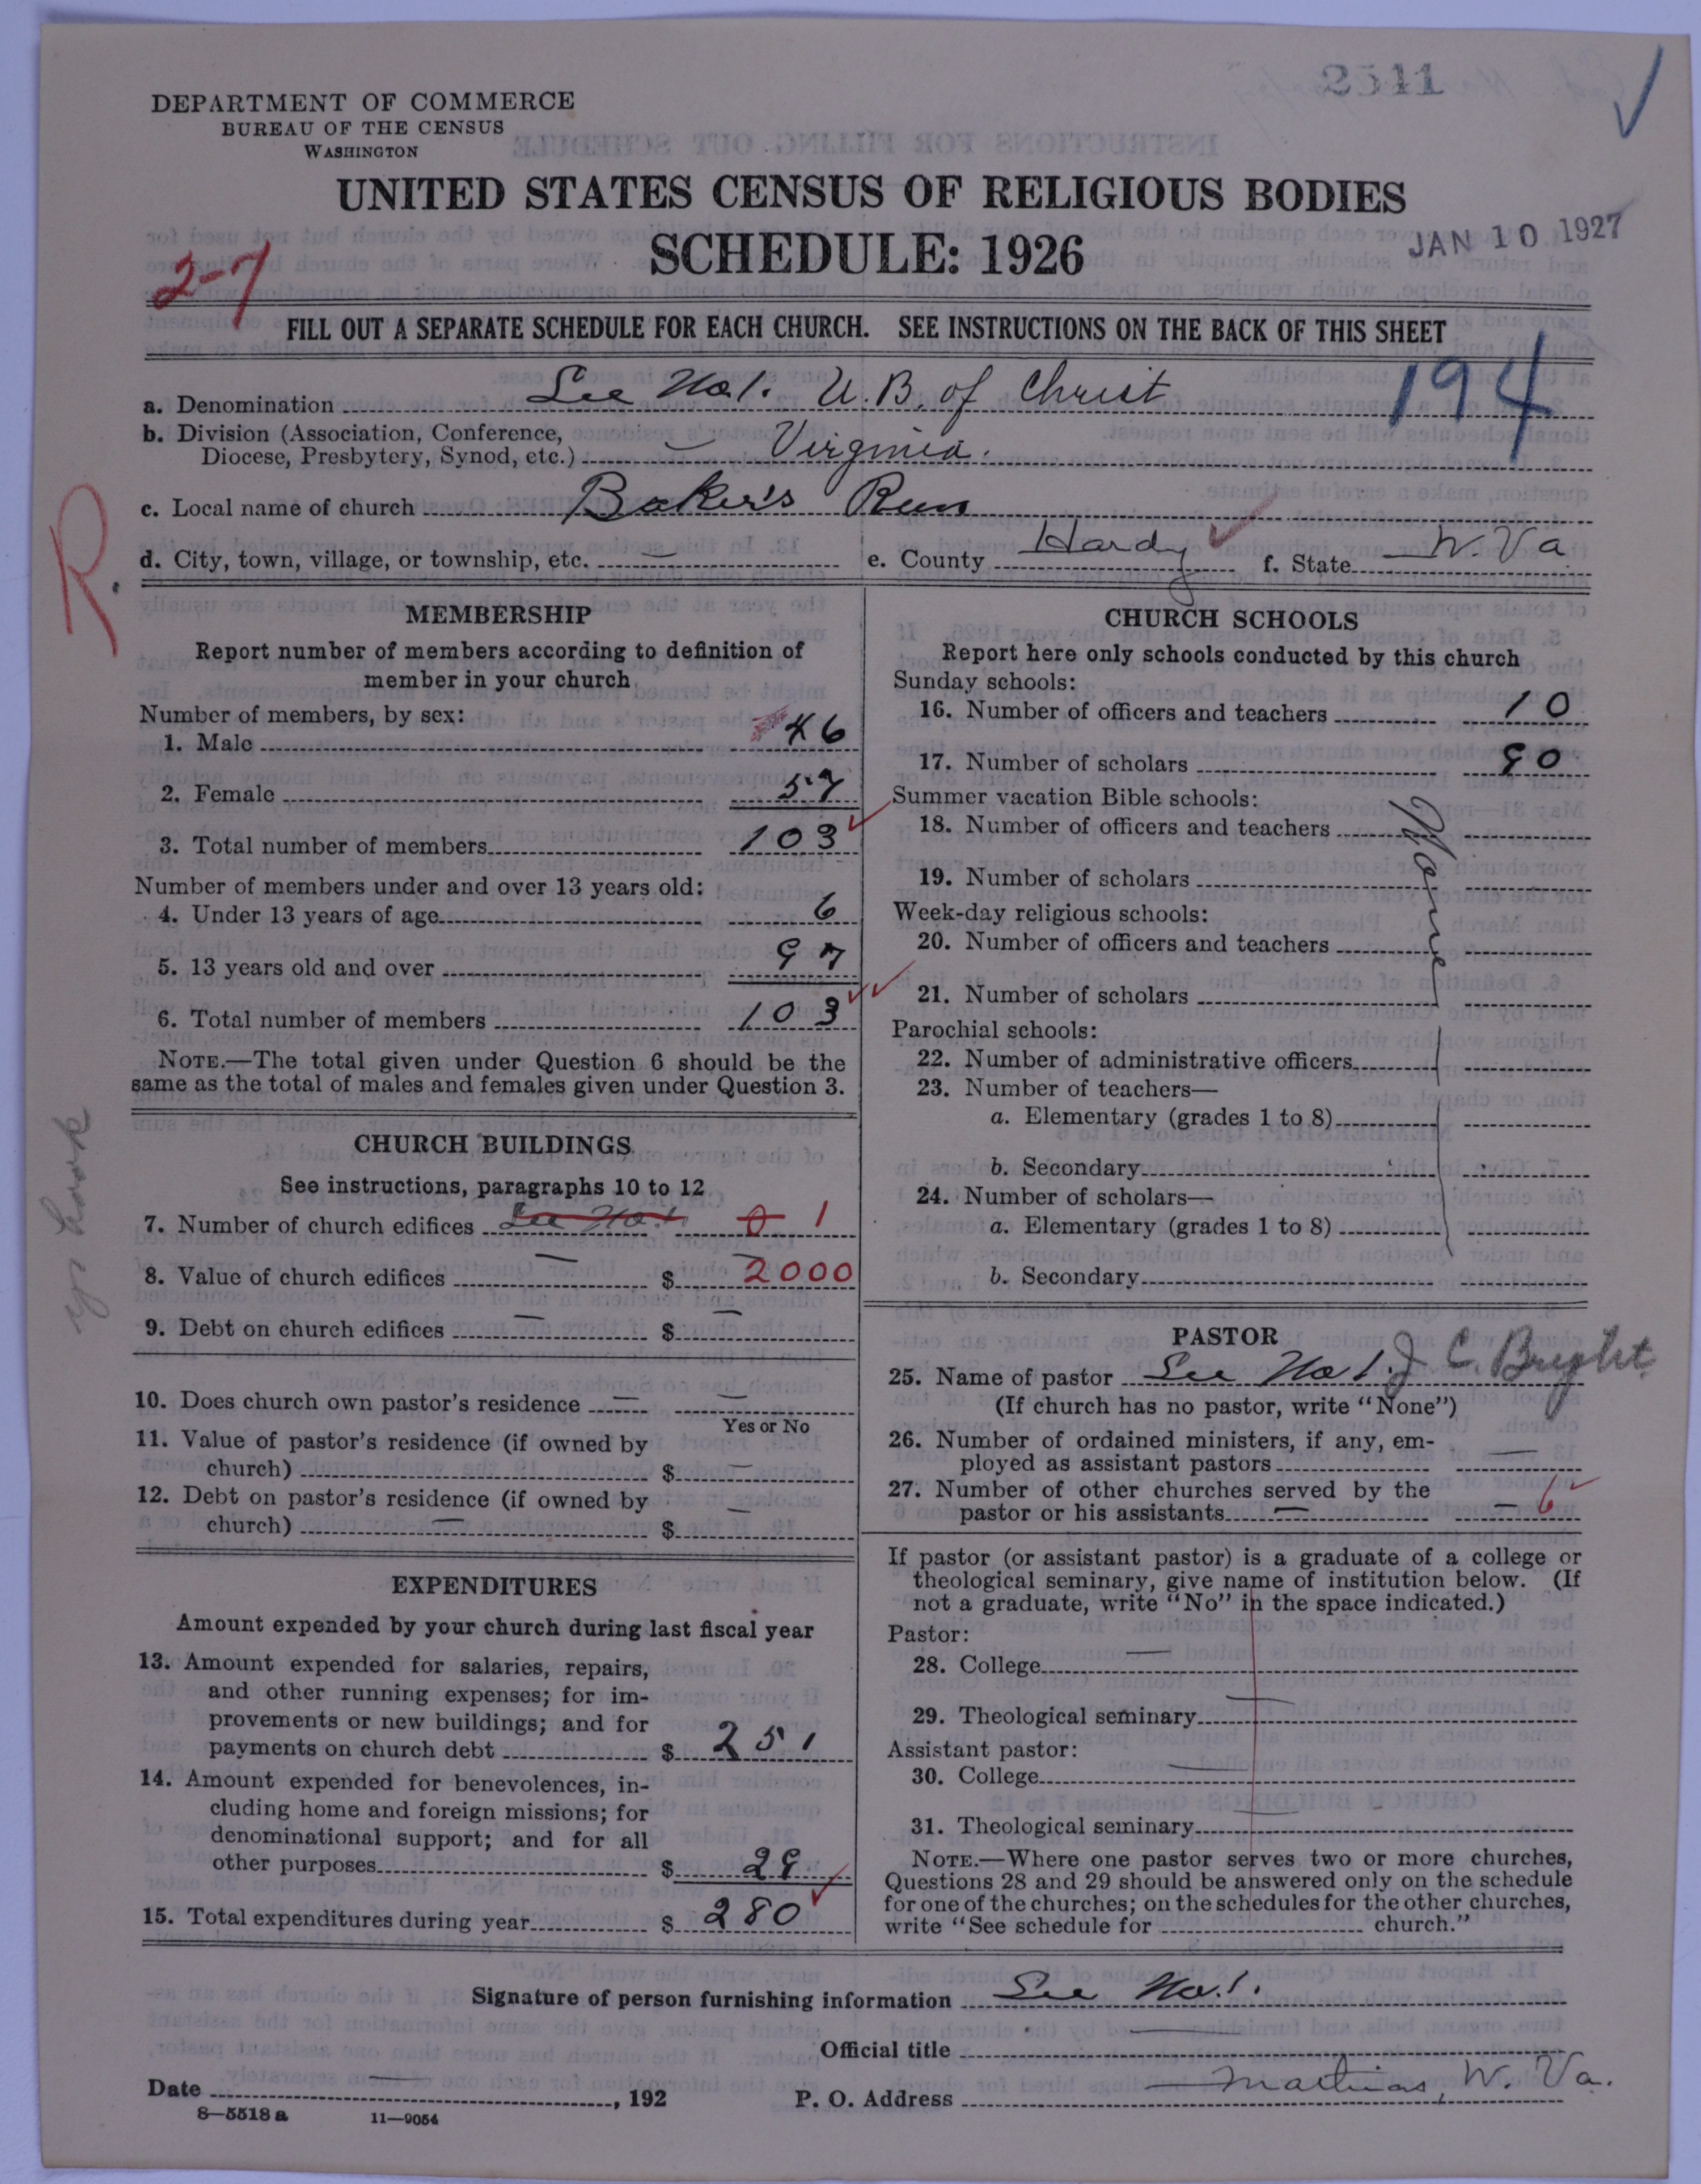 2511
DEPARTMENT OF COMMERCE
BUREAU OF THE CENSUS
WASHINGTON
UNITED STATES CENSUS OF RELIGIOUS BODIES
SCHEDULE: 1926
JAN 10 1927
2-7
FILL OUT A SEPARATE SCHEDULE FOR EACH CHURCH. SEE INSTRUCTIONS ON THE BACK OF THIS SHEET
194
a. Denomination See No 1. U. B. of Christ
b. Division (Association, Conference,
Diocese, Presbytery, Synod, etc.) Virginia.
c. Local name of church Baker's Run
d. City, town, village, or township, etc. — e. County Hardy f. State W. Va
R.
MEMBERSHIP
Report number of members according to definition of
member in your church
Number of members, by sex:
1. Male 46
2. Female 57
3. Total number of members 103
Number of members under and over 13 years old:
4. Under 13 years of age 6
5. 13 years old and over 97
6. Total number of members 103
NOTE.—The total given under Question 6 should be the
same as the total of males and females given under Question 3.
CHURCH BUILDINGS
See instructions, paragraphs 10 to 12
7. Number of church edifices See No. 1. 0 1
8. Value of church edifices — $ 2000
9. Debt on church edifices — $ —
10. Does church own pastor's residence — —
Yes or No
11. Value of pastor's residence (if owned by
church) $ —
12. Debt on pastor's residence (if owned by
church) — $ —
EXPENDITURES
Amount expended by your church during last fiscal year
13. Amount expended for salaries, repairs,
and other running expenses; for im-
provements or new buildings; and for
payments on church debt $ 251
14. Amount expended for benevolences, in-
cluding home and foreign missions; for
denominational support; and for all
other purposes $ 29
15. Total expenditures during year $ 280
CHURCH SCHOOLS
Report here only schools conducted by this church
Sunday schools:
16. Number of officers and teachers 10
17. Number of scholars 90
Summer vacation Bible schools:
18. Number of officers and teachers
None
19. Number of scholars
Week-day religious schools:
20. Number of officers and teachers
21. Number of scholars
Parochial schools:
22. Number of administrative officers
23. Number of teachers—
a. Elementary (grades 1 to 8)
b. Secondary
24. Number of scholars—
a. Elementary (grades 1 to 8)
b. Secondary
PASTOR
25. Name of pastor See No 1. J C. Bright.
(If church has no pastor, write "None")
26. Number of ordained ministers, if any, em-
ployed as assistant pastors —
27. Number of other churches served by the
pastor or his assistants — — 6
If pastor (or assistant pastor) is a graduate of a college or
theological seminary, give name of institution below. (If
not a graduate, write "No" in the space indicated.)
Pastor:
28. College —
29. Theological seminary —
Assistant pastor:
30. College —
31. Theological seminary —
NOTE.—Where one pastor serves two or more churches,
Questions 28 and 29 should be answered only on the schedule
for one of the churches; on the schedules for the other churches,
write "See schedule for church."
Signature of person furnishing information See No. 1.
Official title —
Date —, 192 P. O. Address — Mathias, W. Va.
8—5518 a 11—9054